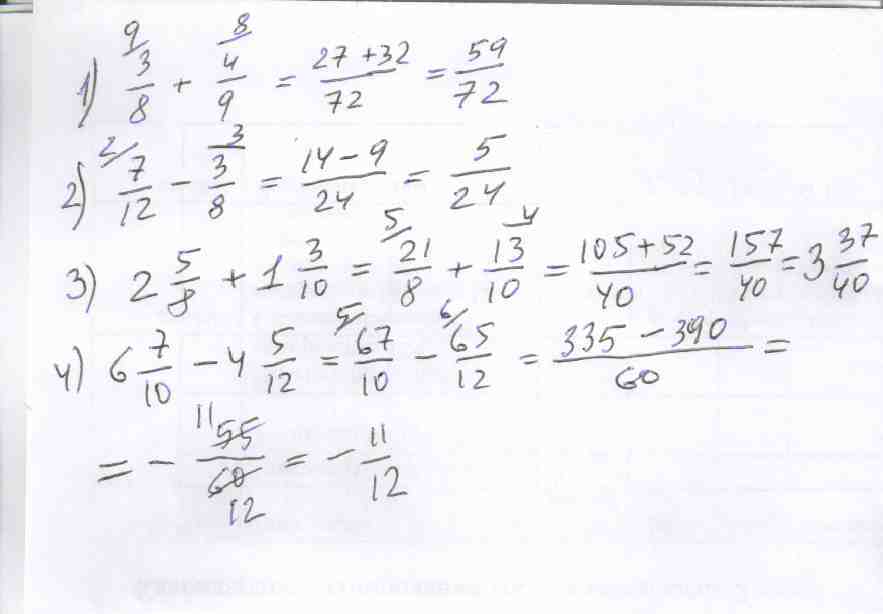 1) 9/ 3/8 + 8/ 4/9 = (27 + 32)/72 = 59/72
2) 2/ 7/12 − 3/ 3/8 = (14 − 9)/24 = 5/24
3) 2 5/8 + 1 3/10 = 5/ 21/8 + 4/ 13/10 = (105 + 52)/40 = 157/40 = 3 37/40
4) 6 7/10 − 4 5/12 = 5/ 67/10 − 6/ 65/12 = (335 − 390)/60 =
= − 11 55/60 12 = − 11/12